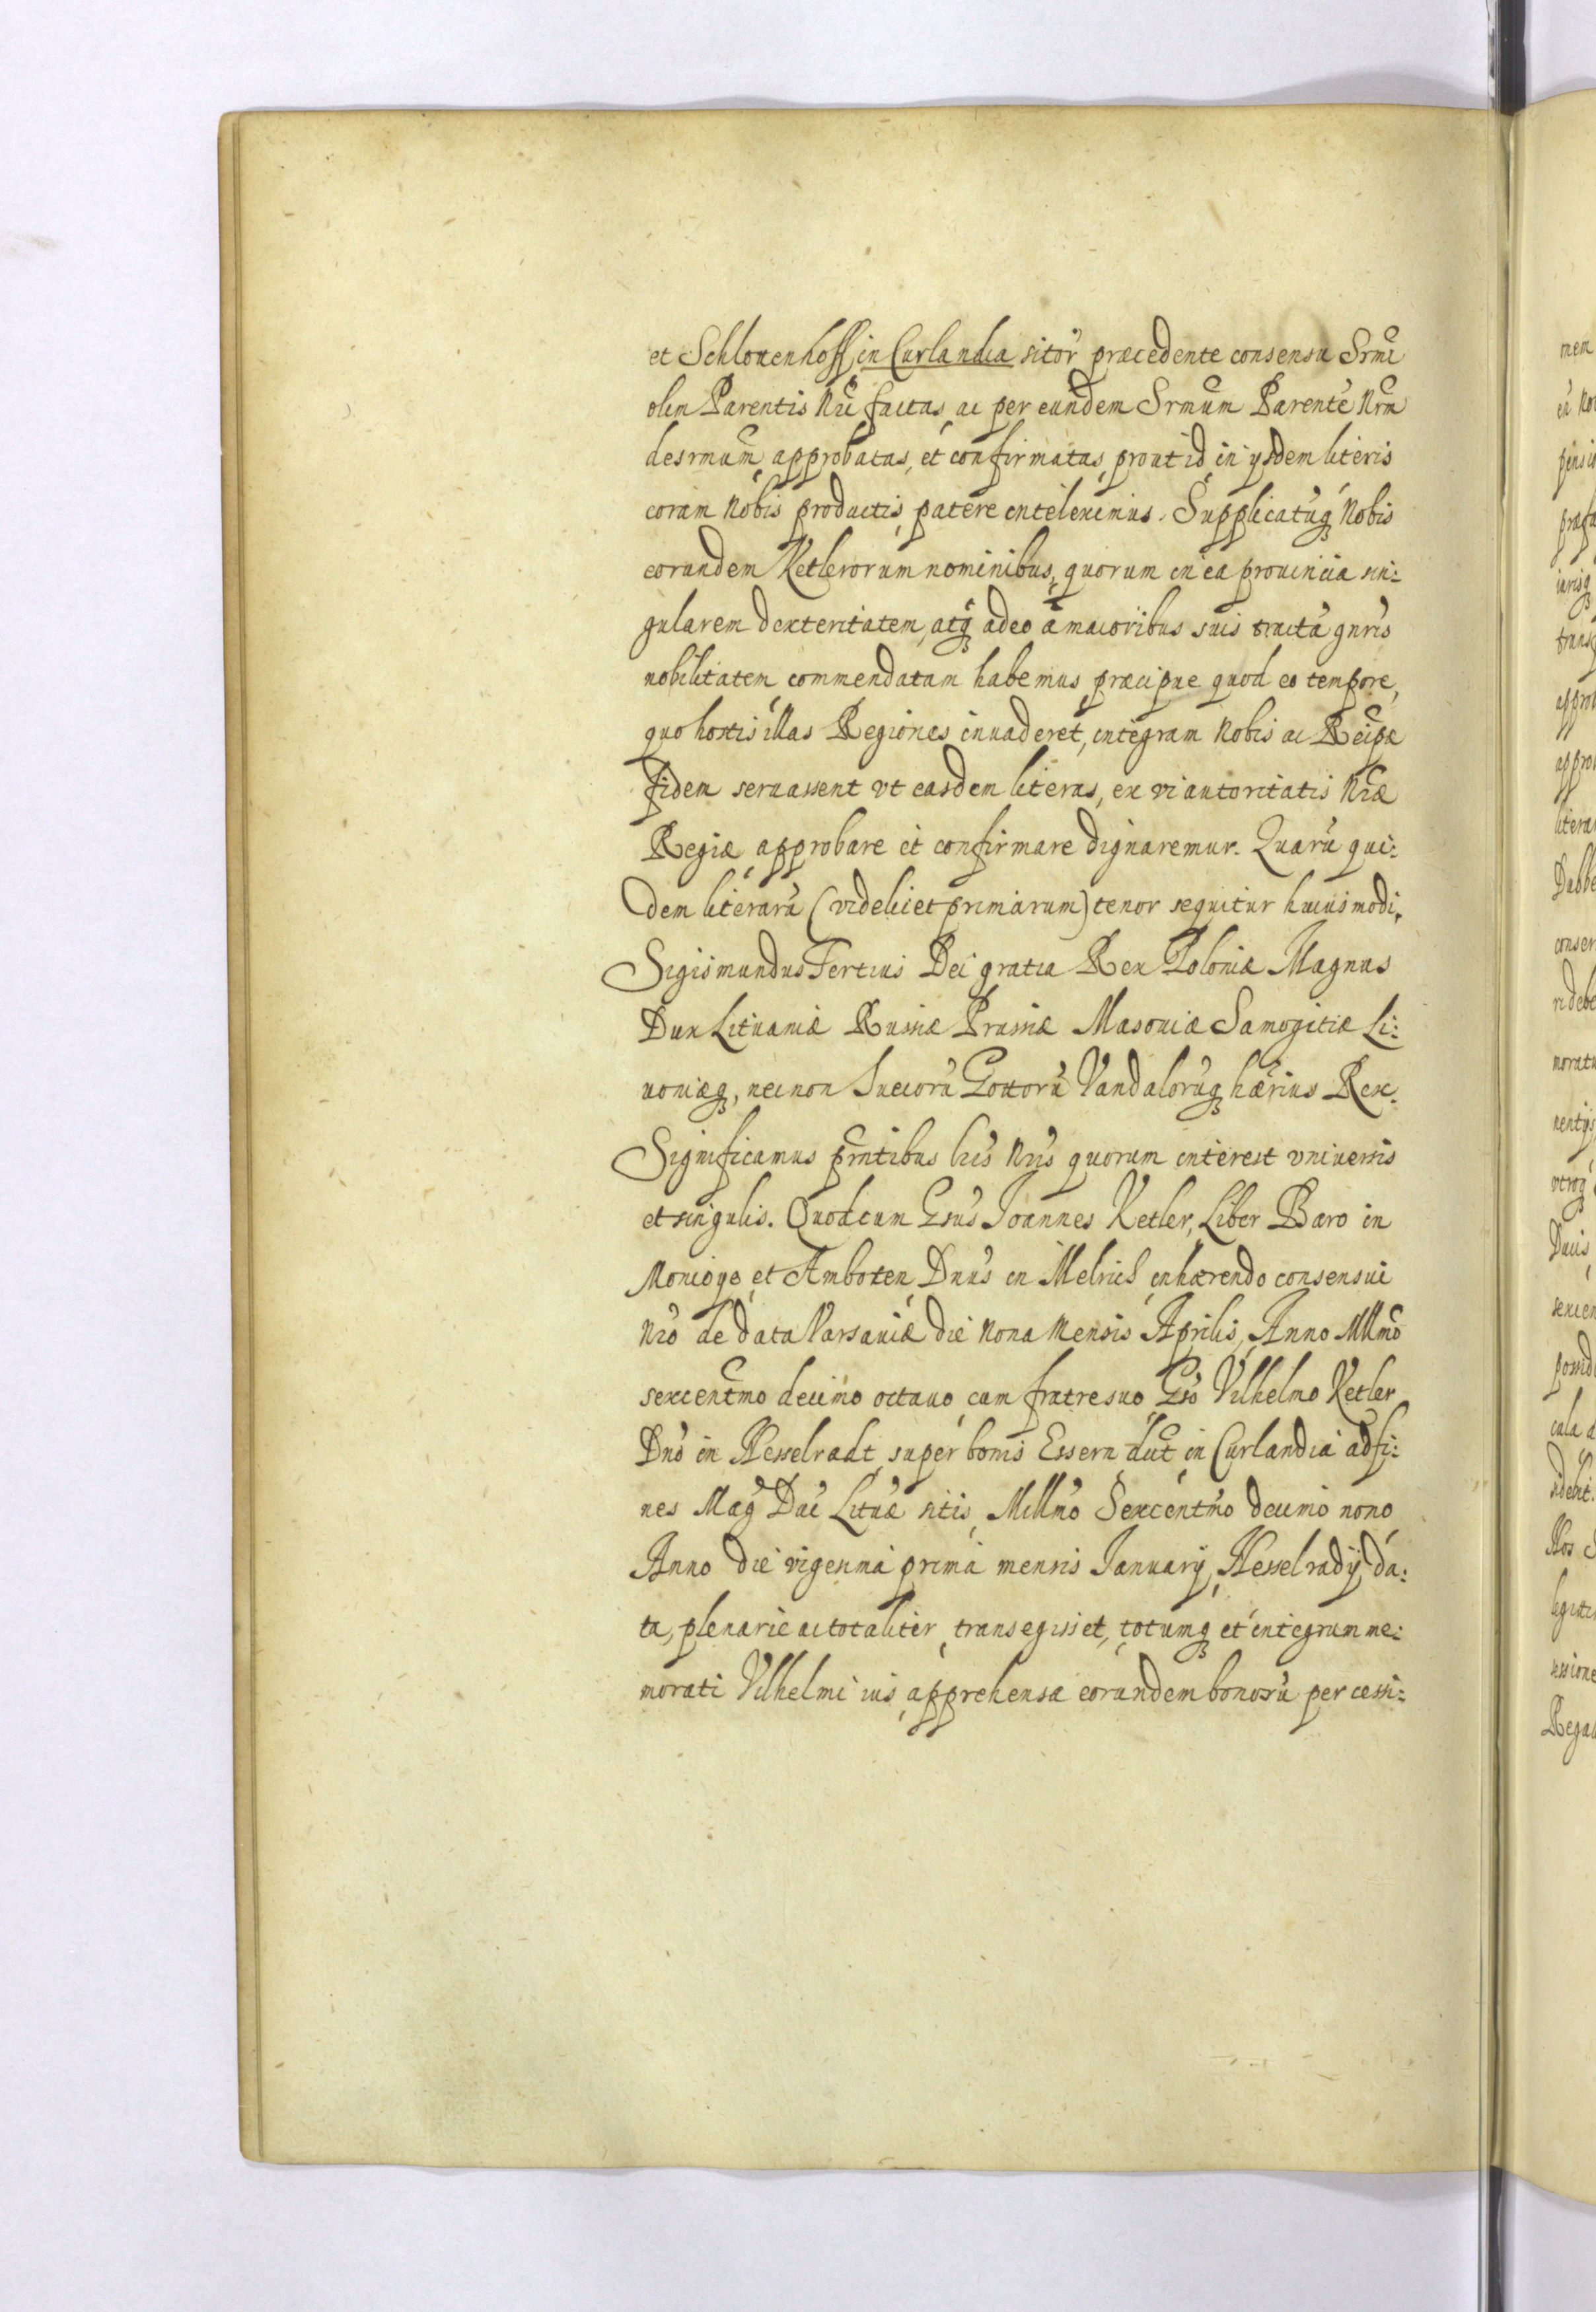 et Schlouenhoff, in Curlandia sitor̃ præcedente consensu Srm̃i
olim Parentis Nr̃i factas, ac per eundem Srm̃um Parentẽ Nr̃m
desrmum, approbatas, et confirmatas, prout id in ysdem literis
coram Nobis productis, patere inteleximus. Supplicatũq Nobis
eorundem Ketlerorum nominibus, quorum in ea prouincia sin:
gularem dexteritatem, atq̃ adeo a maioribus suis tractã gnr̃is
nobilitatem, commendatam habemus, præcipue quod eo tempore,
quo hostis illas Regiones inuaderet, integram Nobis ac Reipæ
fidem seruassent vt easdem literas, ex vi autoritatis Nr̃æ
Regiæ, approbare et confirmare dignaremur. Quarũ qui:
dem literarũ (videlicet primarum) tenor sequitur huiusmodi.
Sigismundus Tertius Dei gratia Rex Poloniæ Magnus
Dux Lituaniæ Russiæ Prussiæ Masouiæ Samogitiæ Li:
uoniæq, necnon Suecorũ Gottorũ Vandalorũq hærius Rex.
Significamus pñtibus lr̃is Nr̃is quorum interest vniuersis
et singulis. Quod cum Gsũs Joannes Ketler, Liber Baro in
Monioye, et Amboten, Dnũs in Melrich, inhærendo consensui
Nr̃o de data Varsauiæ die Nona Mensis Aprilis, Anno Mllmõ
sexcentm̃o decimo octauo, cum fratre suo, Gsõ Vilhelmo Ketler
Dnõ in Nesselradt, super bonis Essern dũt, in Curlandia ad fi:
nes Mag Duc Lituæ sitis, Millmõ Sexcentmõ decimo nono
Anno die vigesima prima mensis Januarij, Nesselradij, da:
ta, plenarie ac totaliter, transegisset, totumq et integrum me:
morati Vilhelmi ius, apprehensa eorundem bonorũ per cessi: